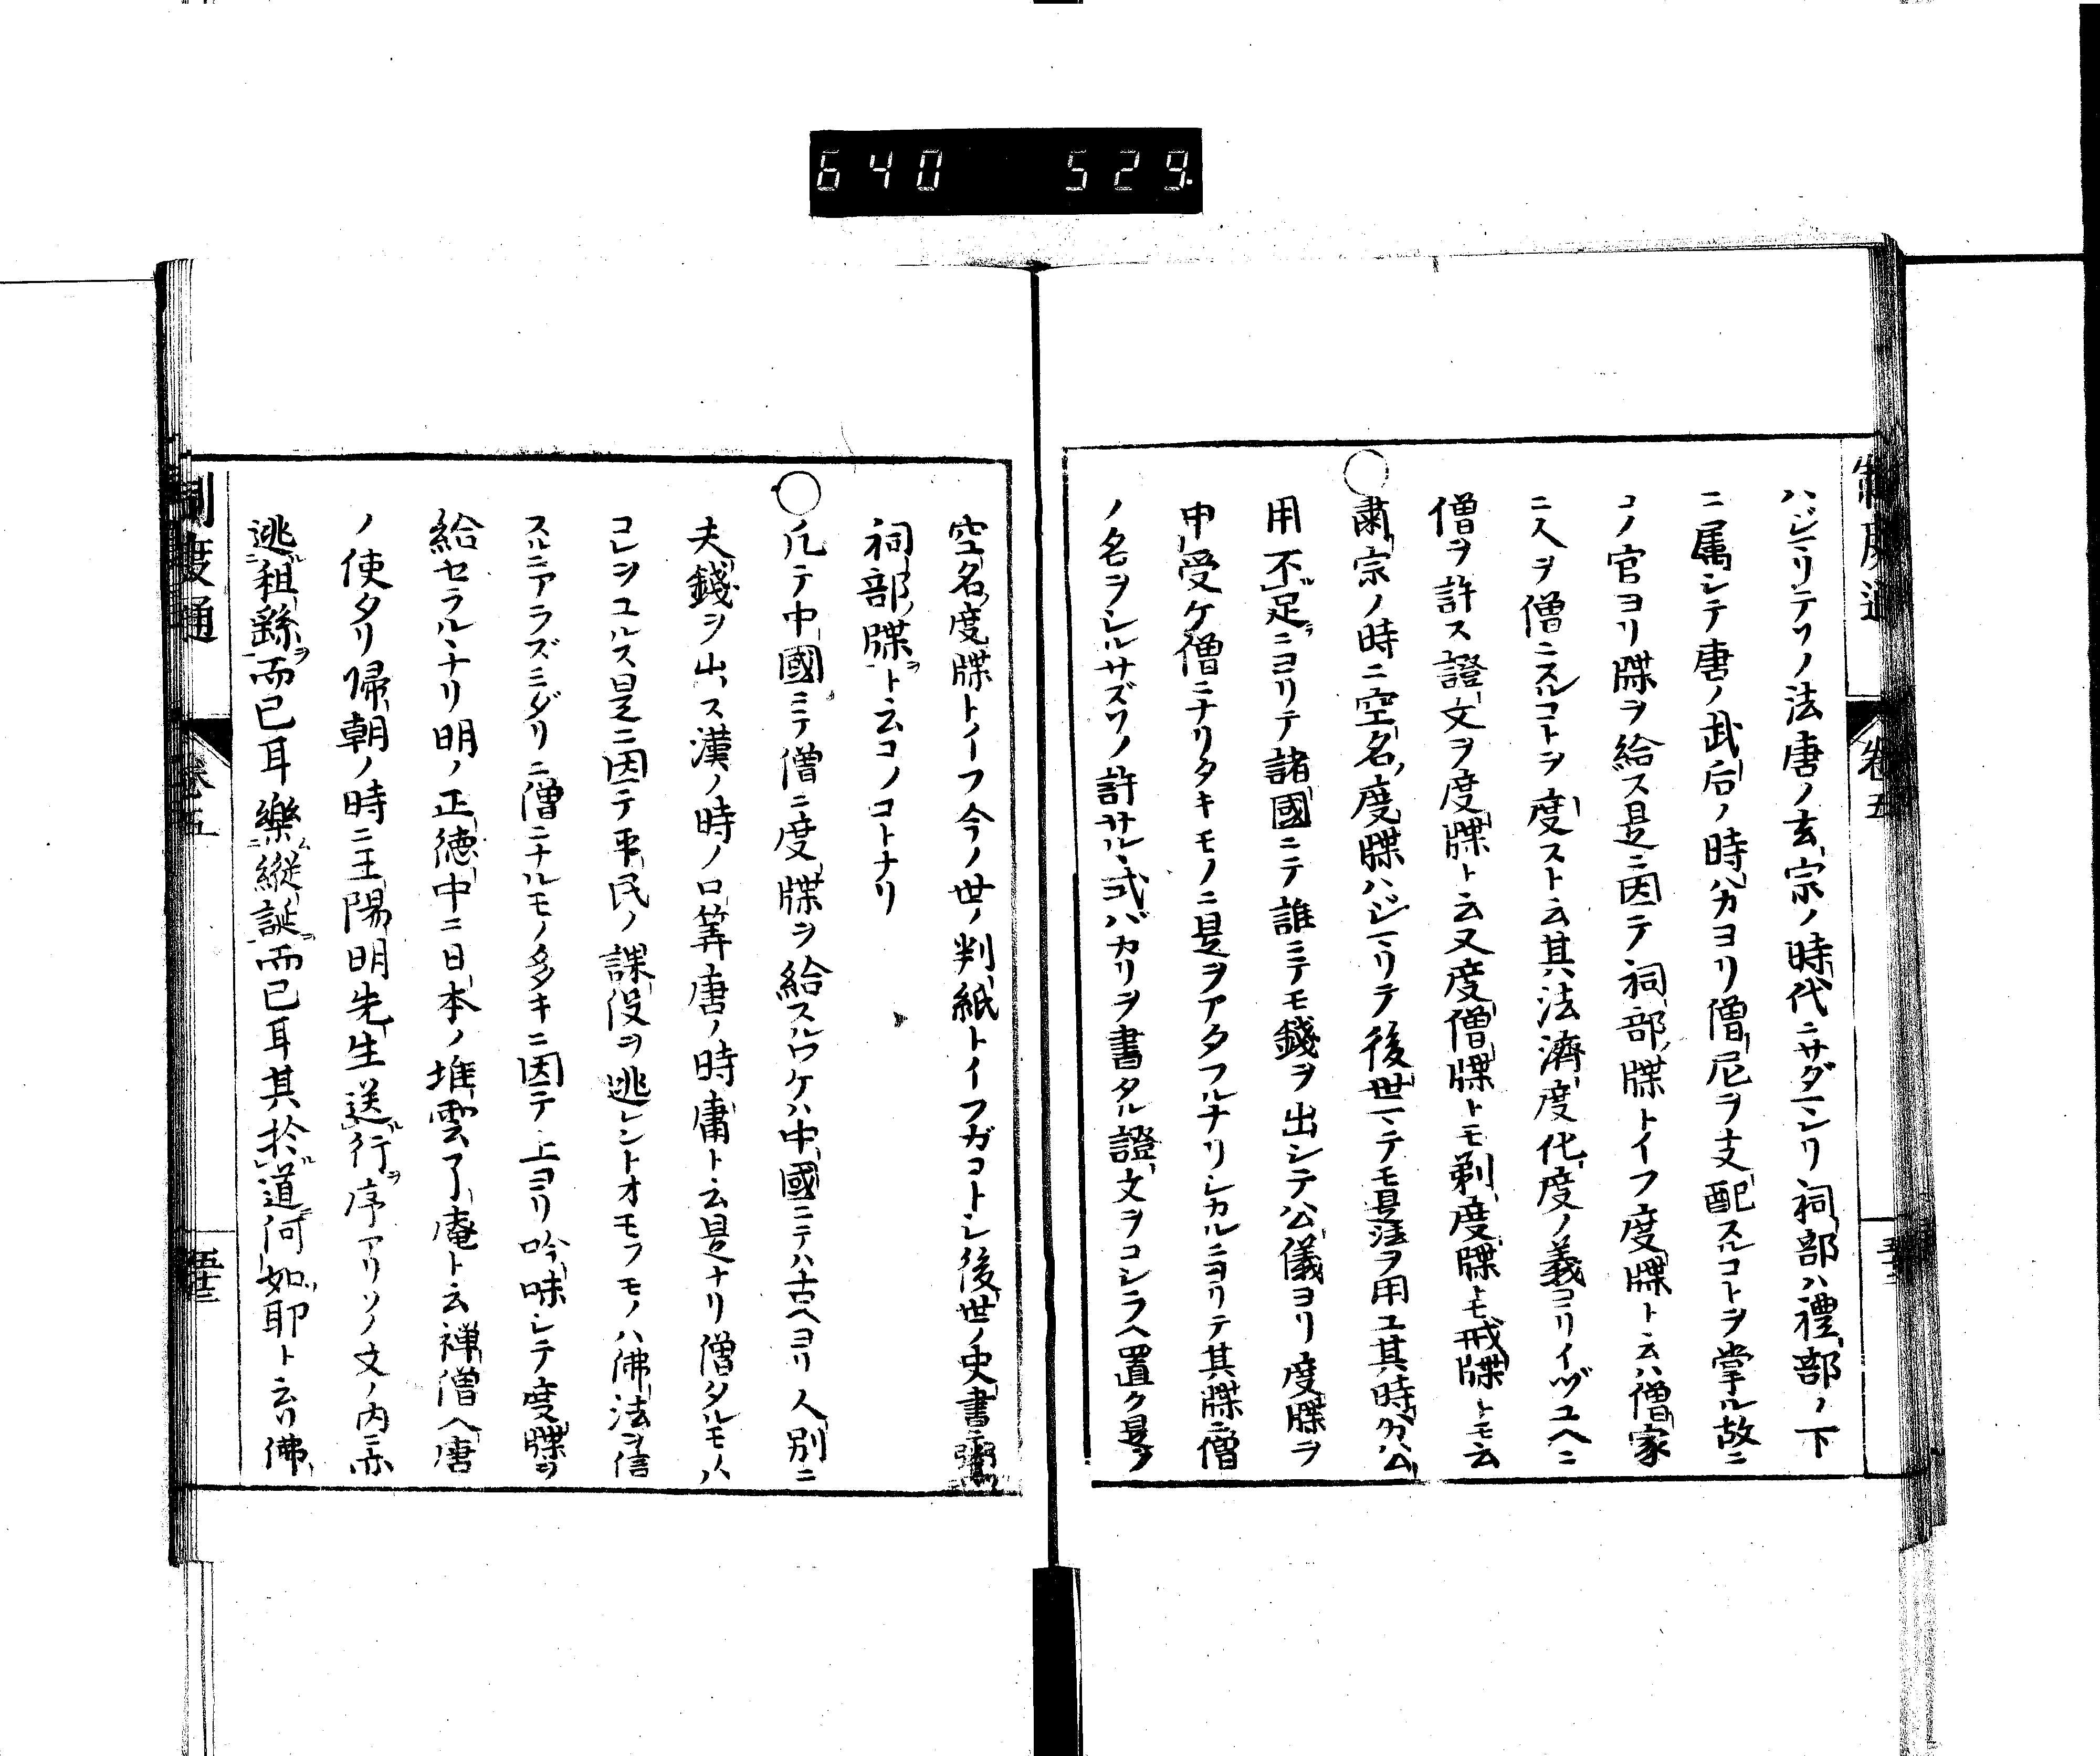 640 529
制度通 卷五
ハジマリテソノ法唐ノ玄宗ノ時代ニサダマレリ祠部ハ禮部ノ下
ニ属シテ唐ノ武后ノ時ハカヨリ僧尼ヲ支配スルコトヲ掌ル故ニ
コノ官ヨリ牒ヲ給ス是ニ因テ祠部牒トイフ度牒ト云ハ僧家
ニ人ヲ僧ニスルコトヲ度スト云其法濟度化度ノ義ヨリイヅユヘニ
僧ヲ許ス證文ヲ度牒ト云又度僧牒トモ剃度牒トモ戒牒トモ云
○肅宗ノ時ニ空名度牒ハジマリテ後世マテモ是法ヲ用ユ其時分ハ公
用不足ニヨリテ諸國ニテ誰ニテモ錢ヲ出シテ公儀ヨリ度牒ヲ
申受ケ僧ニナリタキモノニ是ヲアタフルナリシカルニヨリテ其牒ニ僧
ノ名ヲシルサズソノ許サルヽ式バカリヲ書タル證文ヲコシラヘ置ク是ヲ
空名度牒トイフ今ノ世ノ判紙トイフガコトシ後世ノ史書ニ
祠部牒ヲト云コノコトナリ
○凡テ中國ニテ僧ニ度牒ヲ給スルワケハ中國ニテハ古ヘヨリ人別ニ
夫錢ヲ出ス漢ノ時ノ口筭唐ノ時庸ト云是ナリ僧タルモノハ
コレヲユルス是ニ因テ平民ノ課役ヲ逃レントオモフモノハ佛法ヲ信
スルニアラズミダリニ僧ニナルモノ多キニ因テ上ヨリ吟味シテ度牒ヲ
給セラルヽナリ明ノ正德中ニ日本ノ堆雲了庵ト云禅僧ヘ唐
ノ使タリ帰朝ノ時ニ王陽明先生送行ヲ序アリソノ文ノ内ニ亦
逃租繇而已耳樂縱誕而已耳其於道何如耶ト云リ佛
制度通 卷五